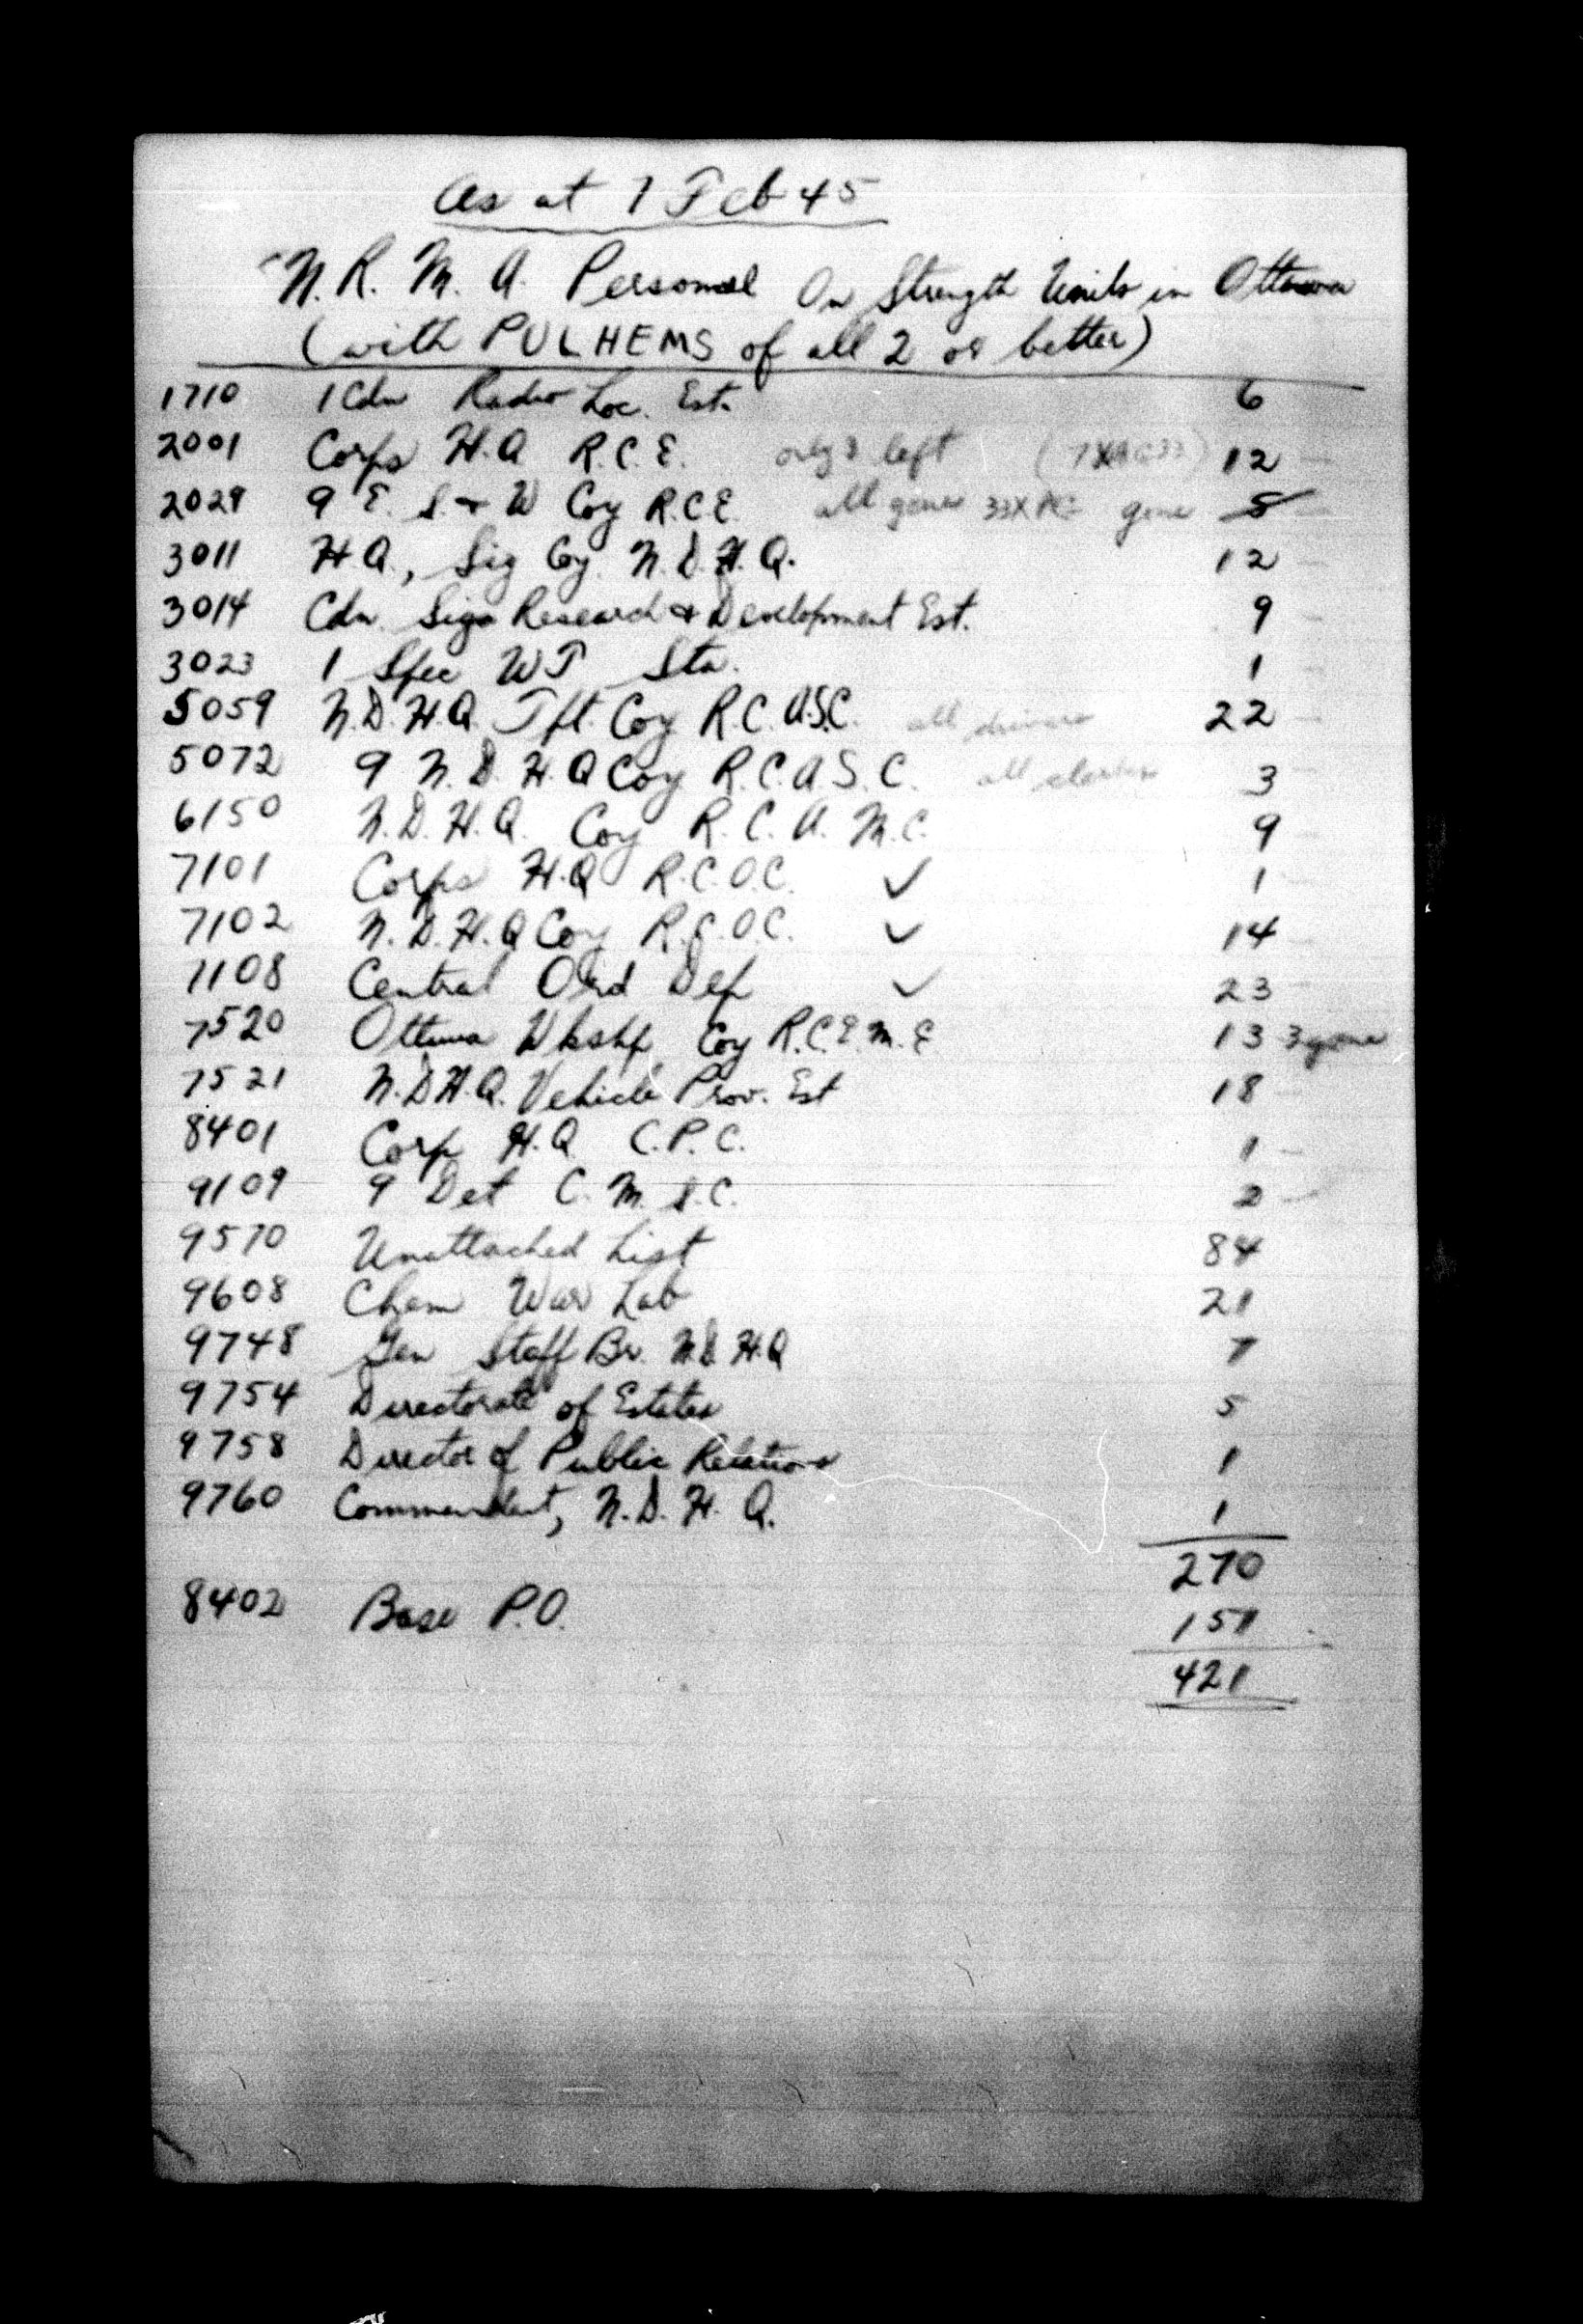 As at 1 Feb 45
N. R. M. A. Personnel On Strength Units in Ottawa
(with PULHEMS of all 2 or better)
1710 1 Cdn Radio Loc. Est. 6
2001 Corps H.Q R.C.E. only 3 left 12
2029 9 E. S. & W Coy R.C.E. all gone gone 5
3011 H.Q, Sig Coy. N.D.H.Q. 12
3014 Cdn. Sigs Research & Development Est. 9
3023 1 Spec WT Sta. 1
5059 N.D.H.Q. Tpt. Coy R.C.A.S.C. all drivers 22
5072 9 N.D.H.Q Coy R.C.A.S.C. all clerks 3
6150 N.D.H.Q. Coy R.C.A.M.C. 9
7101 Corps H.Q R.C.O.C. ✓ 1
7102 N.D.H.Q Coy R.C.O.C. ✓ 14
7108 Central Ord Dep ✓ 23
7520 Ottawa Wkshp Coy R.C.E.M.E 13 3 gone
7521 N.D.H.Q. Vehicle Prov. Est 18
8401 Corp H.Q C.P.C. 1
9109 9 Det C.M.S.C. 2
9570 Unattached List 84
9608 Chem War Lab 21
9748 Gen Staff Br. N.D.H.Q 7
9754 Directorate of Estates 5
9758 Director of Public Relations 1
9760 Commandant, N.D.H.Q. 1
270
8402 Base P.O. 151
421